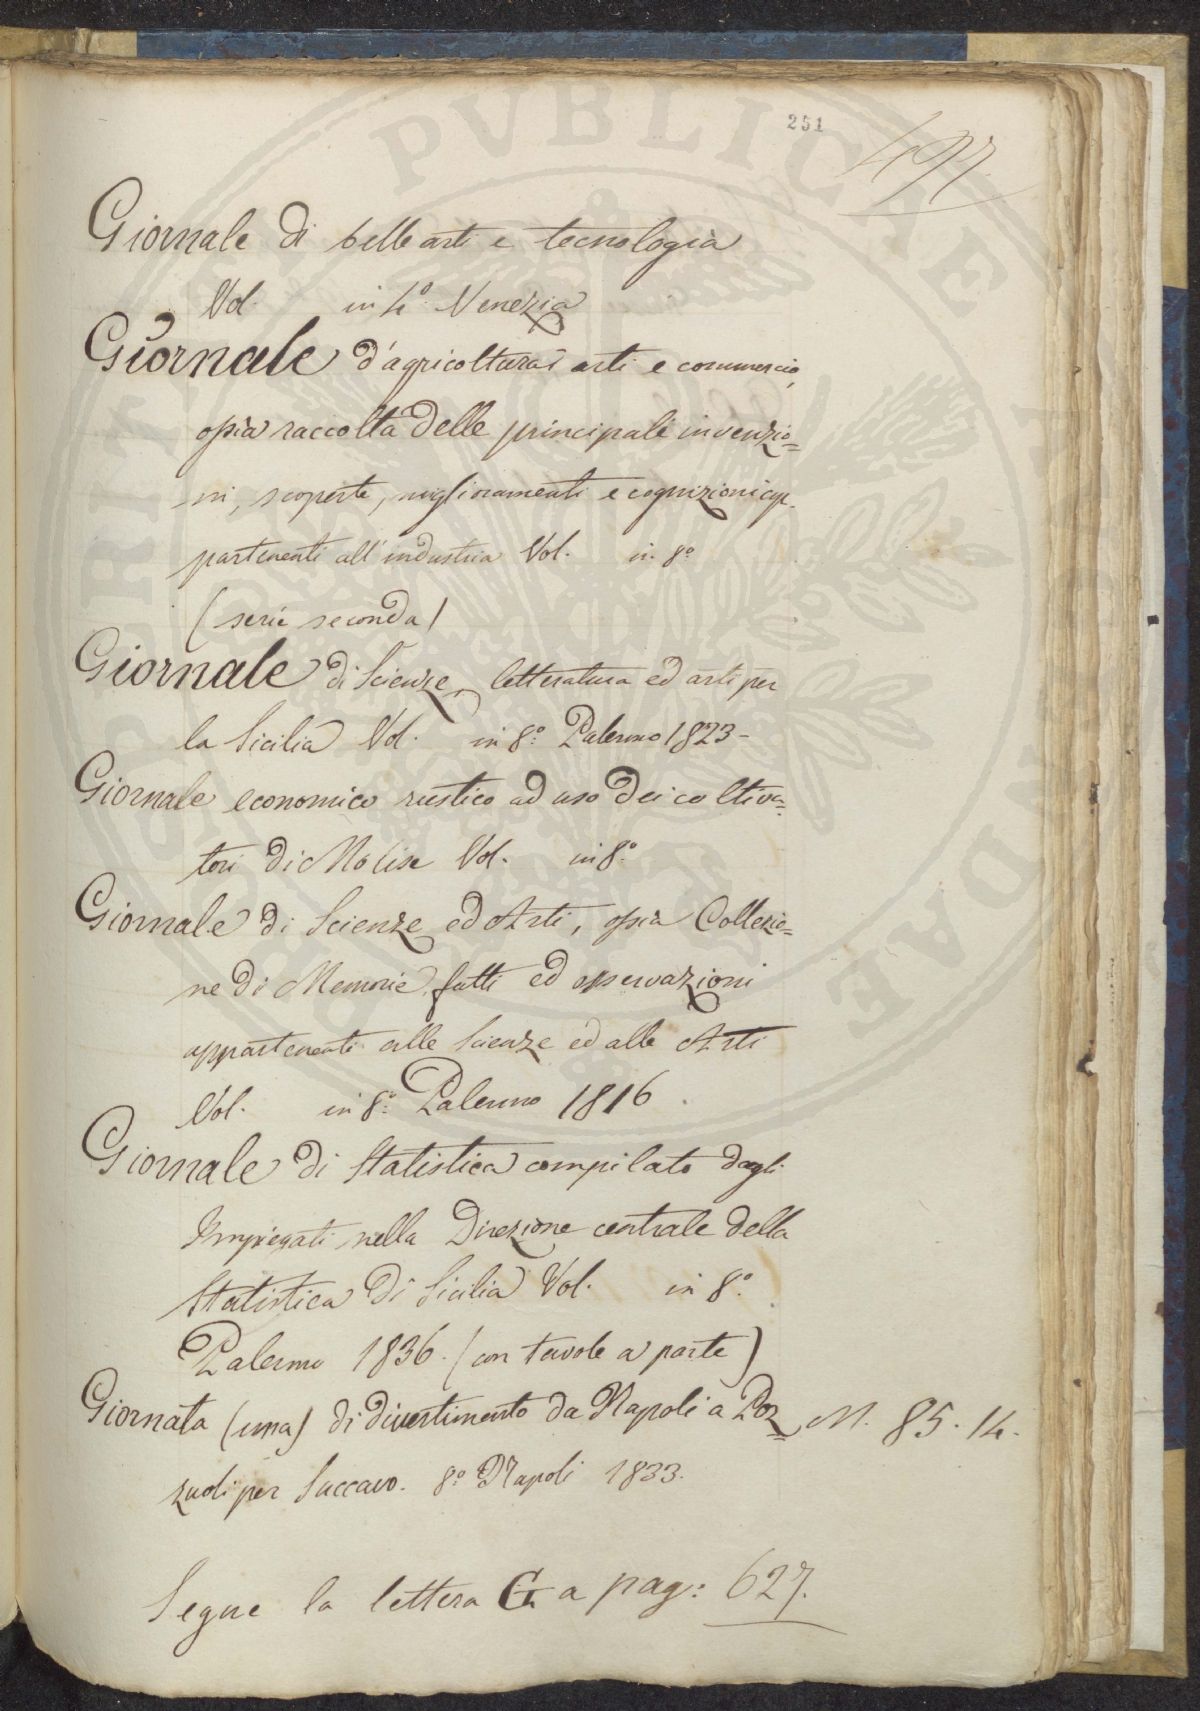 251
497.
Giornale di belle arti e tecnologia
Vol. in 4º. Venezia
Giornale d'agricoltura arti e commercio,
ossia raccolta delle principali invenzio=
ni, scoperte, miglioramenti e cognizioni ap-
partenenti all'industria Vol. in 8º
(serie seconda)
Giornale di Scienze, letteratura ed arti per
la Sicilia Vol. in 8º. Palermo 1823-
Giornale economico rustico ad uso dei coltiva=
tori di Molise Vol. in 8º
Giornale di Scienze ed Arti, ossia Collezio=
ne di Memorie, fatti ed osservazioni
appartenenti alle Scienze ed alle Arti
Vol. in 8º. Palermo 1816.
Giornale di Statistica compilato dagli
Impiegati nella Direzione centrale della
Statistica di Sicilia Vol. in 8º.
Palermo 1836. (con tavole a parte)
Giornata (una) di divertimento da Napoli a Poz= M. 85. 14.
zuoli per Saccavo. 8º Napoli 1833.
Segue la lettera G a pag: 627.